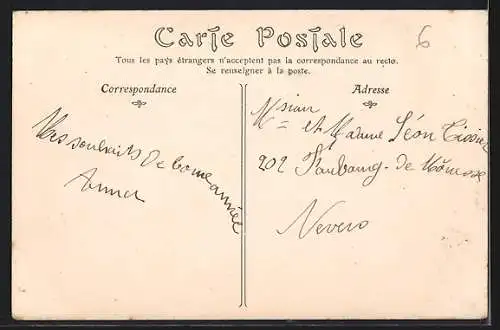 6
Carte Postale
Tous les pays étrangers n'acceptent pas la correspondance au recto.
Se renseigner à la poste.
Correspondance
Adresse
souhaits de bonne année
et Madame Léon Tissier
202 Faubourg - de
Nevers